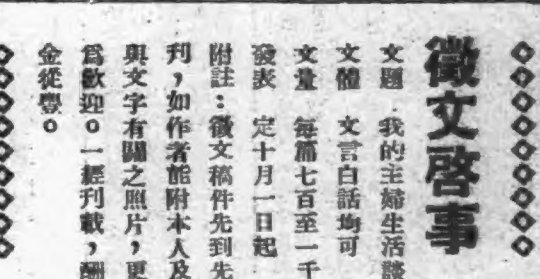 徵文啓事
文題　我的主婦生活談
文體　文言白話均可
文量　每篇七百至一千
發表　定十月一日起
附註：徵文稿件先到先
刊，如作者能附本人及
與文字有關之照片，更
爲歡迎。一經刊載，酬
金從豐。